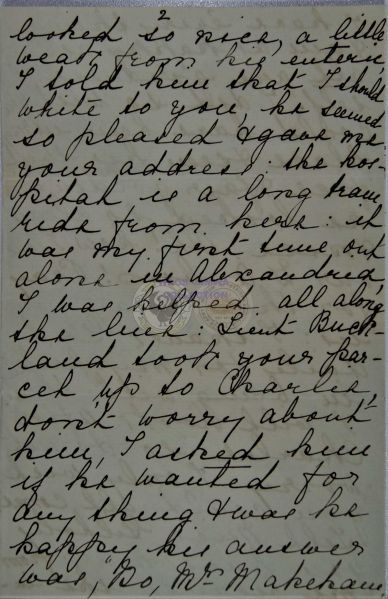 2
looked so nice, a little
weak from his enteric,
I told him that I should
write to you, he seemed
so pleased & gave me
your address: the hos-
pital is a long tram
ride from here: it
was my first time out
alone in Alexandria,
I was helped all along
the line: Lieut Buck-
land took your par-
cel up to Charlie,
don't worry about
him, I asked him
if he wanted for
any thing & was he
happy his answer
was, "So, Mrs Makeham,